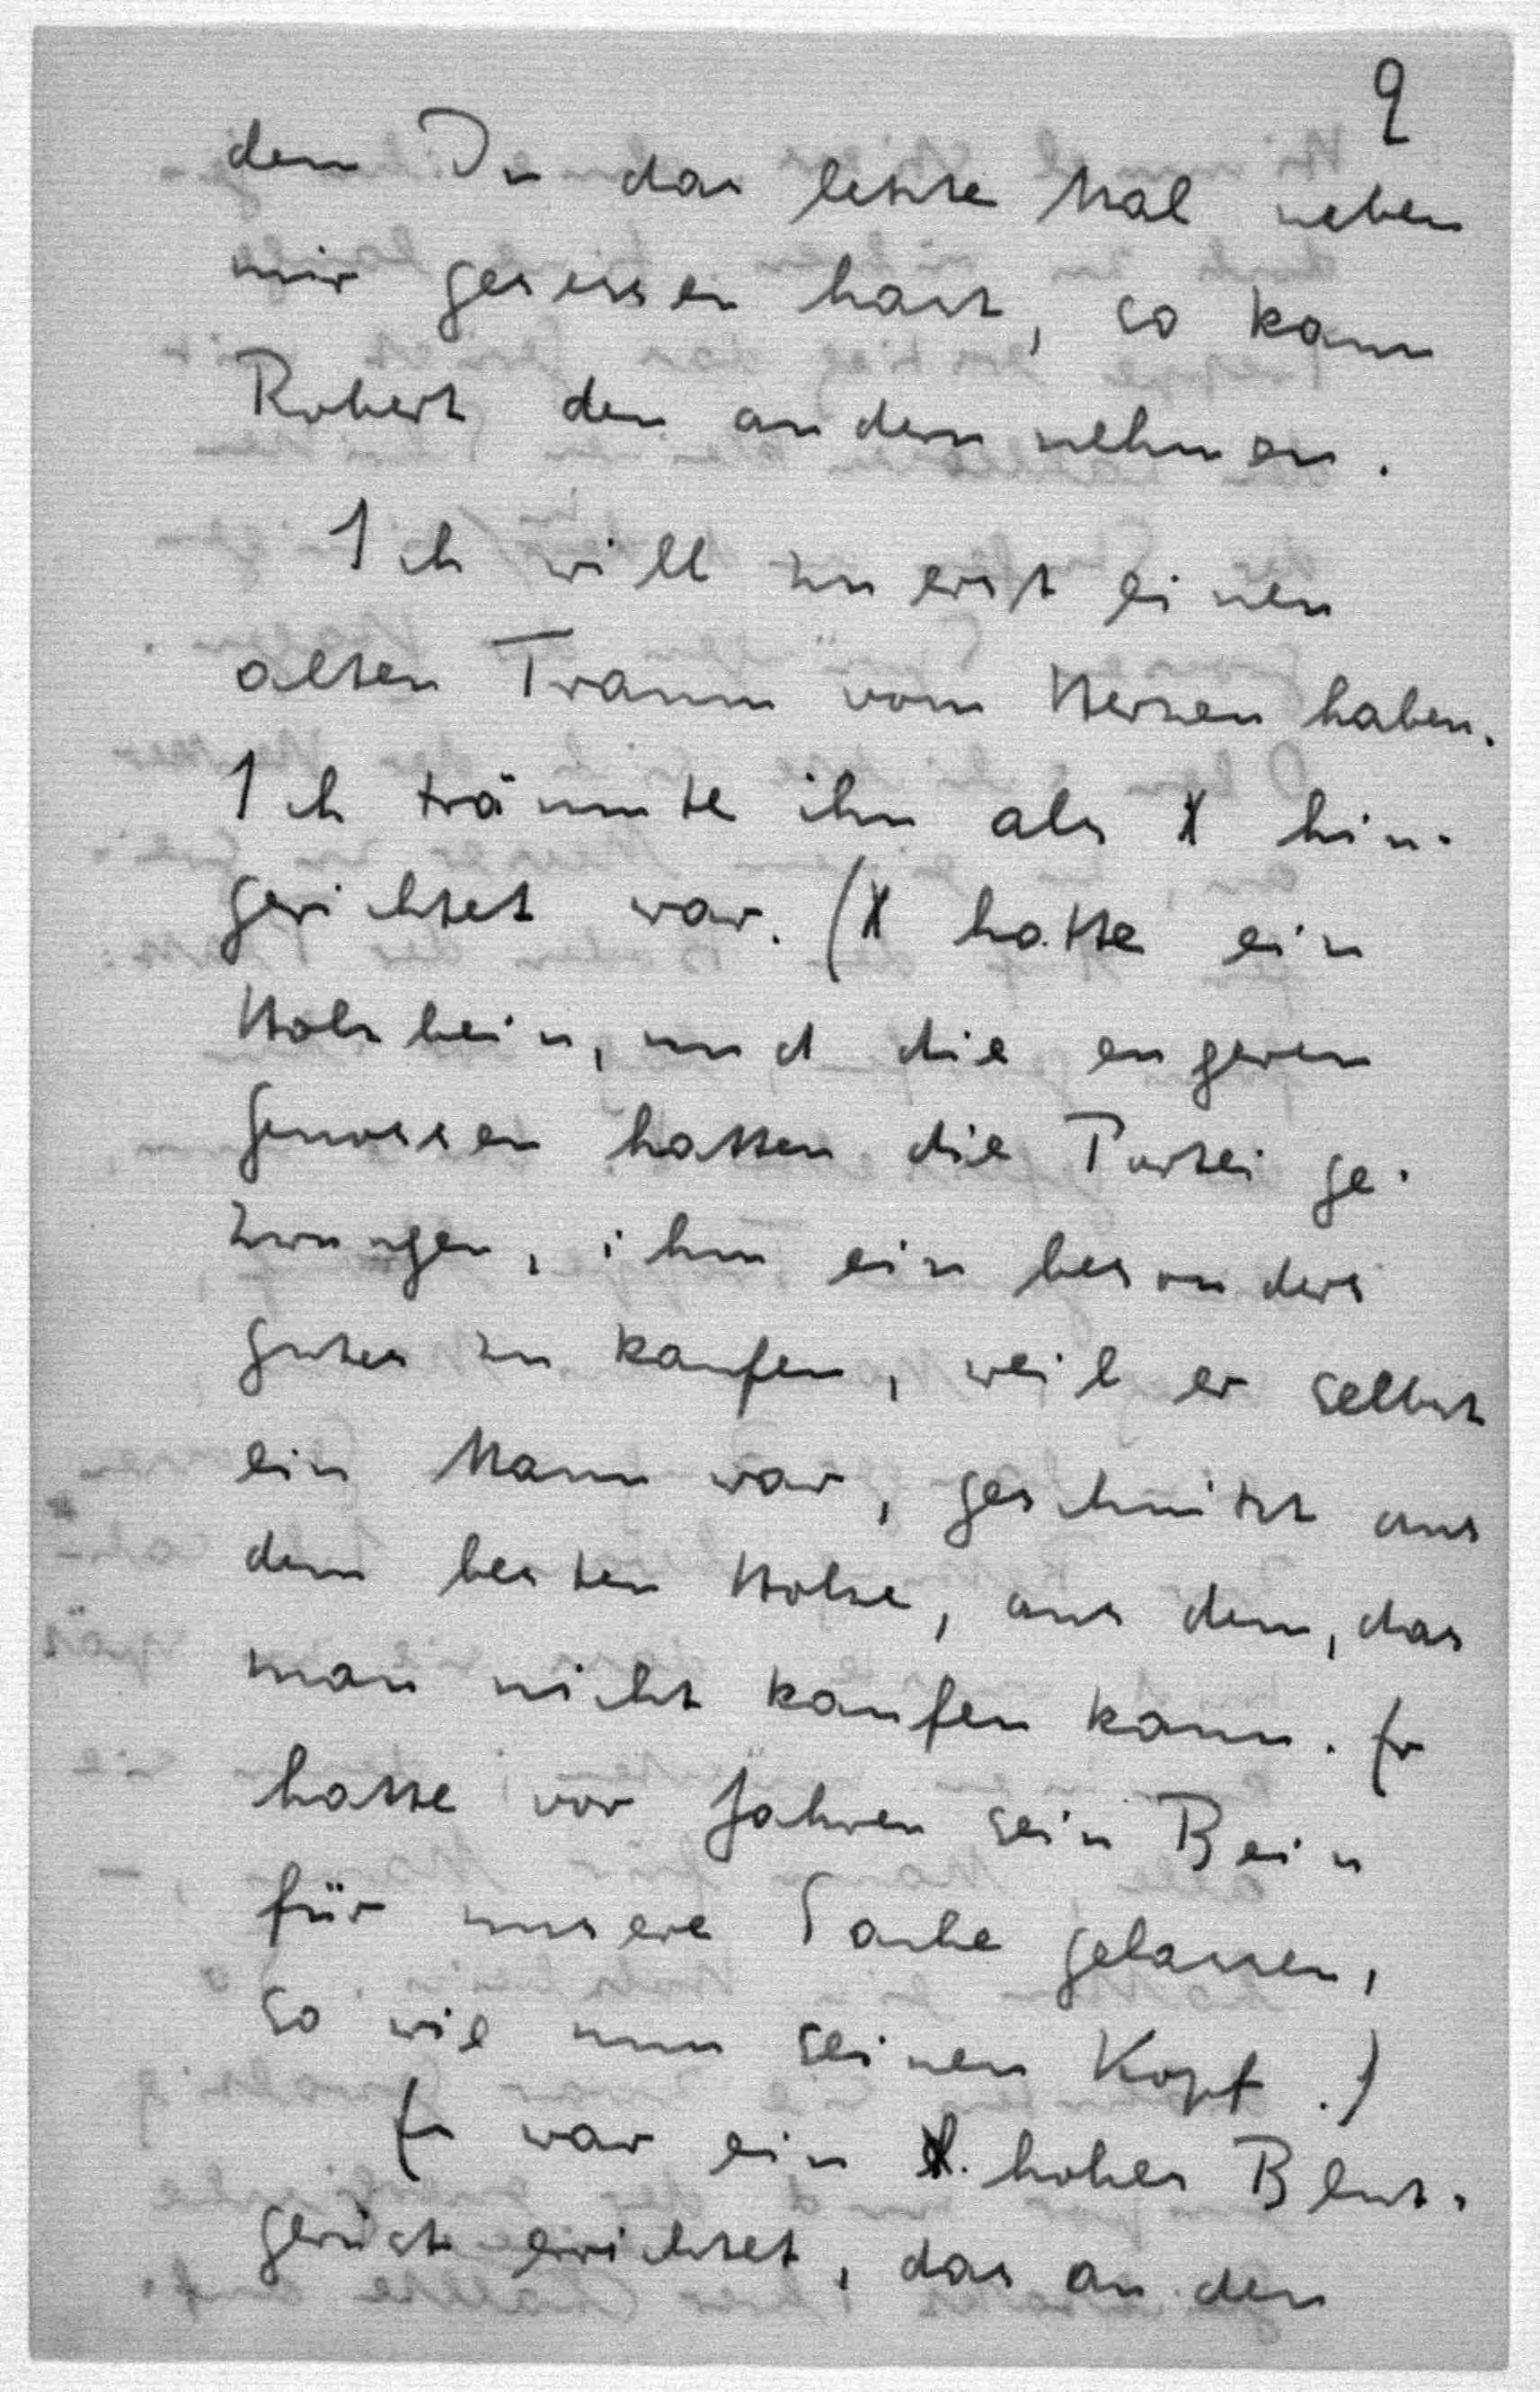 9
dem Du das letzte Mal neben
mir gesessen hast, so kann
Robert den andern nehmen.
Ich will zuerst einen
alten Traum vom Herzen haben.
Ich träumte ihn als X hin-
gerichtet war. (X hatte ein
Holzbein, und die engeren
Genossen hatten die Partei ge-
zwungen, ihm ein besonders
gutes zu kaufen, weil er selbst
ein Mann war, geschnitzt aus
dem besten Holze, aus dem, das
man nicht kaufen kann. Er
hatte vor Jahren sein Bein
für unsere Sache gelassen,
so wie nun seinen Kopf.)
Es war ein hohes Blut-
gerüst errichtet, das an den